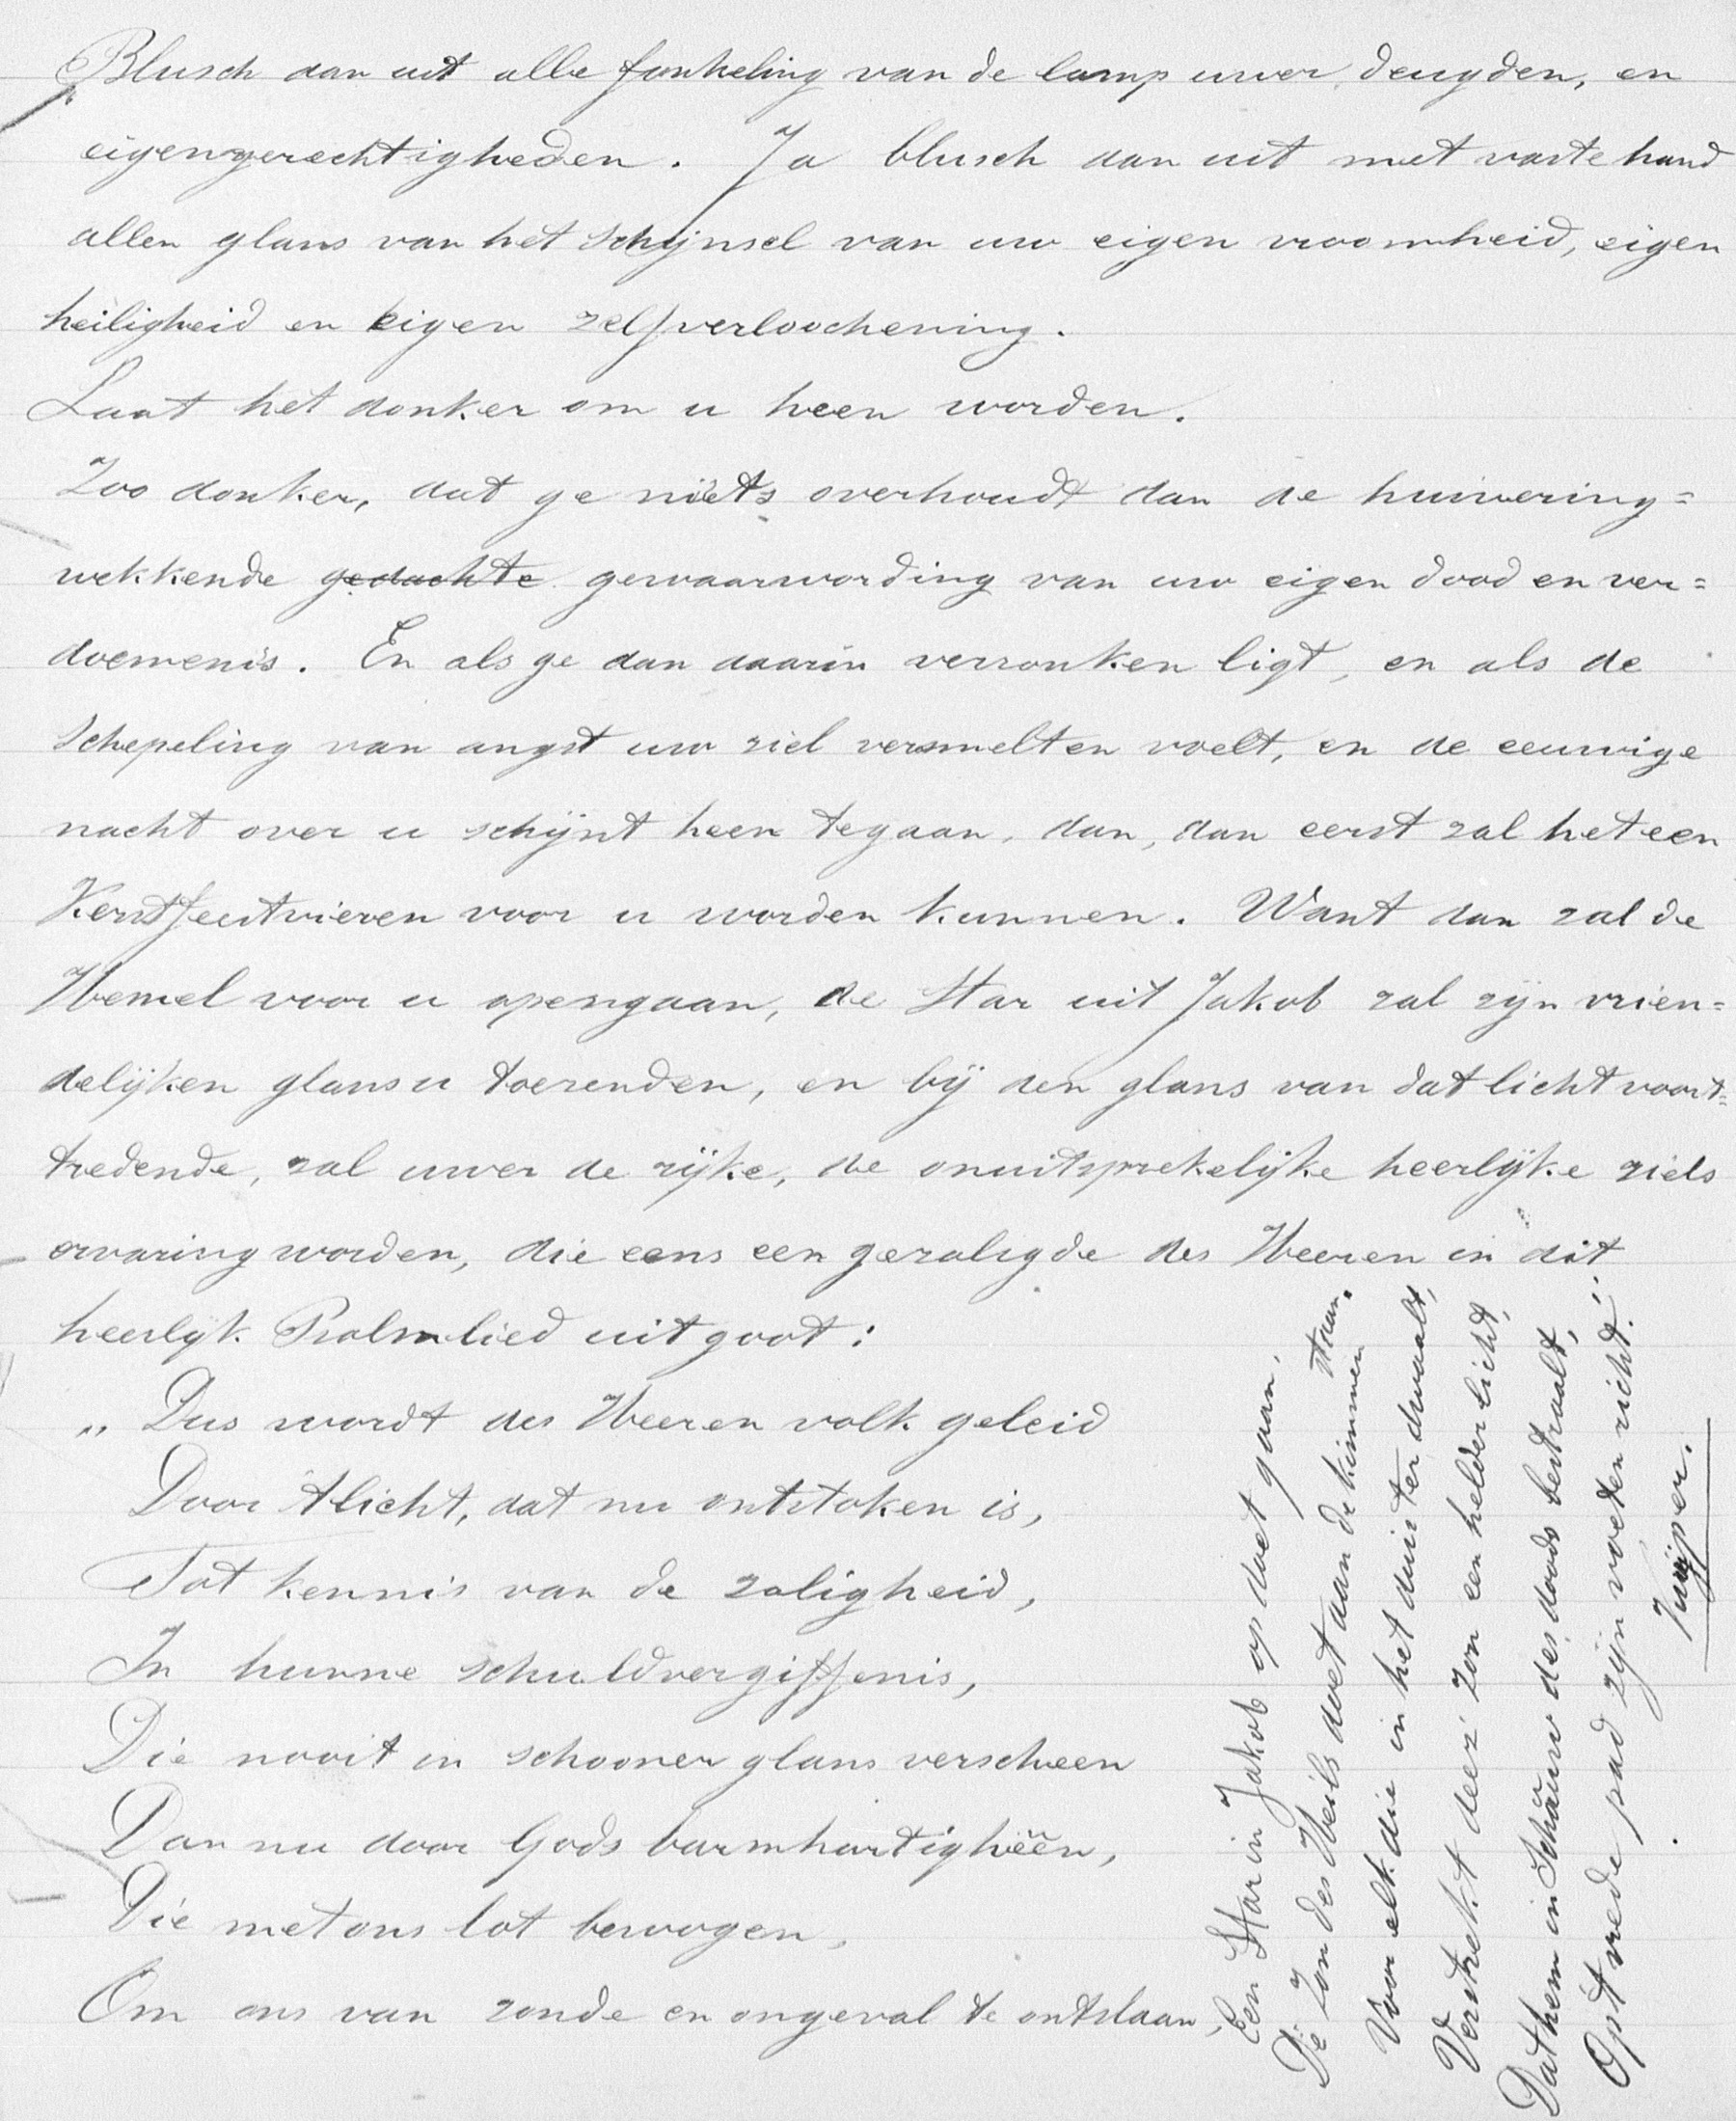 Blusch dan uit alle fonkeling van de lamp uwer deugden, en
eigengerechtigheden. Ja blusch dan uit met vaste hand
allen glans van het schijnsel van uw eigen vroomheid, eigen
heiligheid en eigen zelfverloochening.
Laat het donker om u heen worden.
Zoo donker, dat ge niets overhoudt dan de huivering=
wekkende gedachte gewaarwording van uw eigen dood en ver=
doemenis. En als ge dan daarin verzonken ligt, en als de
schepeling van angst uw ziel versmelten voelt, en de eeuwige
nacht over u schijnt heen te gaan, dan, dan eerst zal het een
Kerstfeestvieren voor u worden kunnen. Want dan zal de
Hemel voor u opengaan, de Star uit Jakob zal zijn vrien=
delijken glans u toezenden, en bij den glans van dat licht voort=
tredende, zal uwer de rijke, de onuitsprekelijke heerlijke ziels
ervaring worden, die eens een gezaligde des Heeren in dit
heerlijk Psalmlied uitgoot:
„ Dus wordt des Heeren volk geleid
Door 't licht, dat nu ontstoken is,
Tot kennis van de zaligheid,
In hunne schuldvergiffenis,
Die nooit in schooner glans verscheen
Dan nu door Gods barmhartighêên,
Die met ons lot bewogen,
Om ons van zonde en ongeval te ontslaan,
Een Star in Jakob op doet gaan,
De Zon des Heils doet aan de kimmen staan.
Voor elk die in het duister dwaalt,
Verstrekt deez' zon een helder licht,
Dat hem in schâuw des doods bestraalt,
Op 't vrede pad zijn voeten richt.
Kuijper.